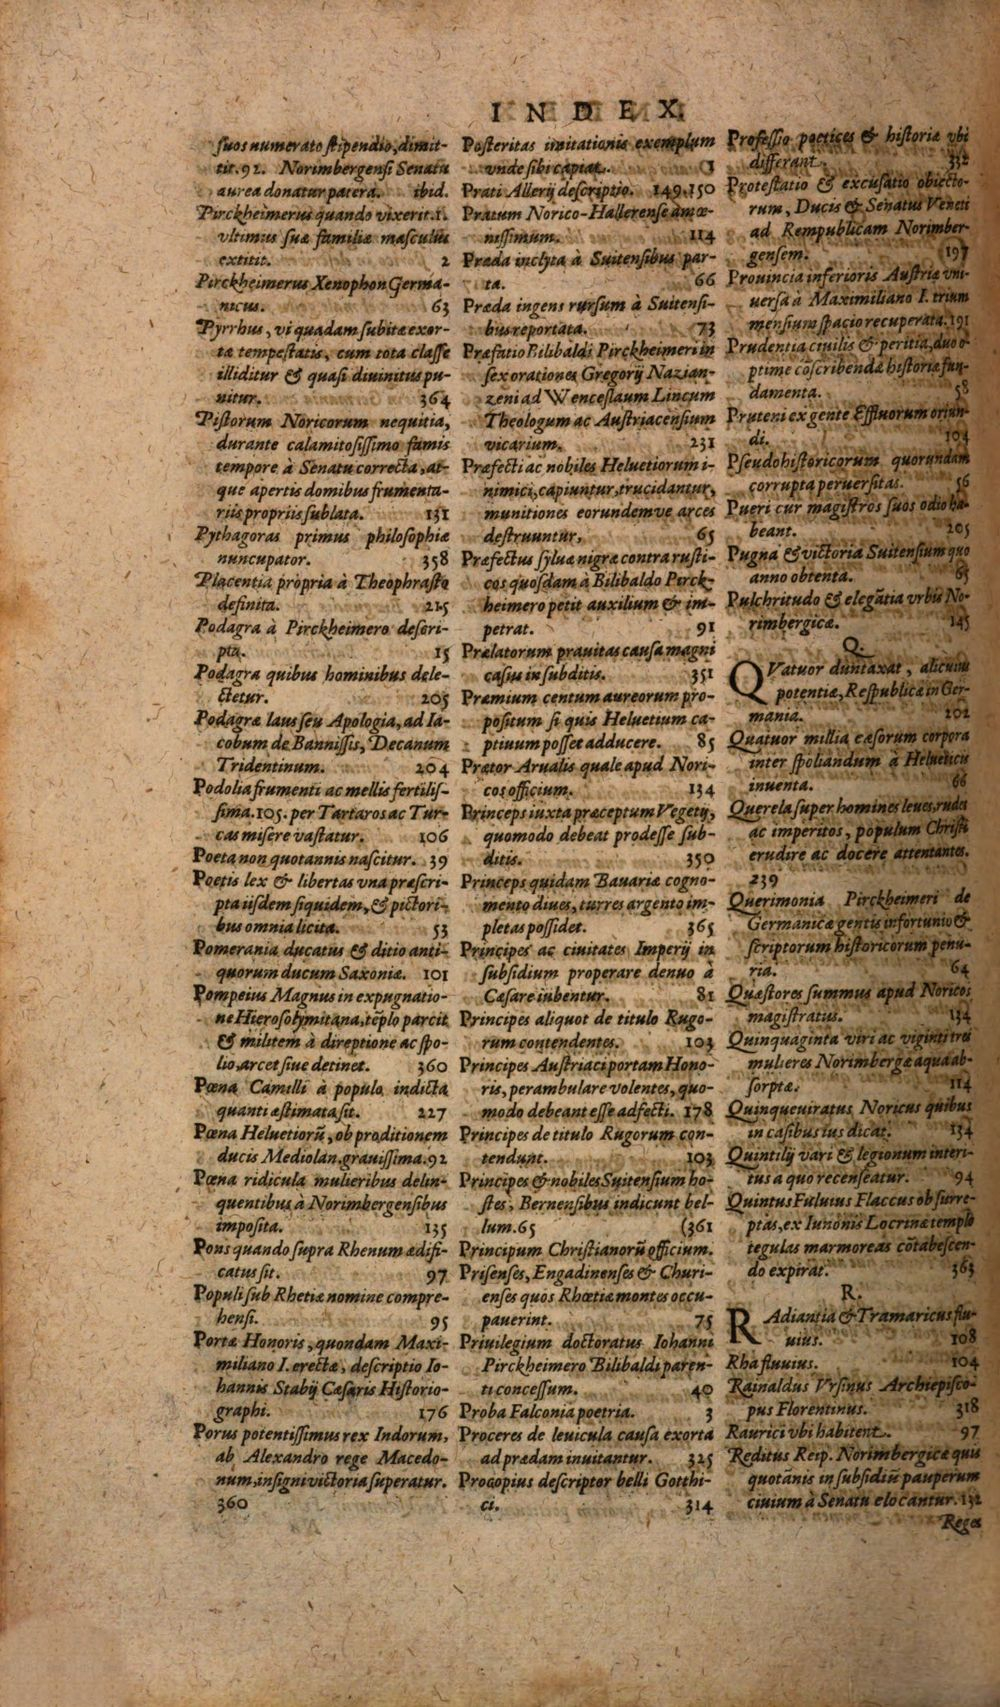 INDEX.
suos numerato stipendio, dimit-
tit. 92. Norimbergensi Senatu
aurea donatur patera. ibid.
Pirckheimerus quando vixerit. 1.
vltimus suæ familiæ masculus
extitit. 2
Pirckheimerus Xenophon Germa-
nicus. 63
Pyrrhus, vi quadam subitæ exor-
tæ tempestatis, cum tota classe
illiditur & quasi diuinitus pu-
nitur. 364
Pistorum Noricorum nequitia,
durante calamitosissimo famis
tempore à Senatu correcta, at-
que apertis domibus frumenta-
riis propriis sublata. 131
Pythagoras primus philosophiæ
nuncupator. 358
Placentia propria à Theophrasto
definita. 215
Podagra à Pirckheimero descri-
pta. 15
Podagra quibus hominibus dele-
ctetur. 205
Podagræ laus seu Apologia, ad Ia-
cobum de Bannissis, Decanum
Tridentinum. 204
Podolia frumenti ac mellis fertilis-
sima. 105. per Tartaros ac Tur-
cas misere vastatur. 106
Poeta non quotannis nascitur. 39
Poetis lex & libertas vna præscri-
pta iisdem siquidem, & pictori-
bus omnia licita. 53
Pomerania ducatus & ditio anti-
quorum ducum Saxoniæ. 101
Pompeius Magnus in expugnatio-
ne Hierosolymitana, tēplo parcit
& militem à direptione ac spo-
lio, arcet siue detinet. 360
Pœna Camilli à populo indicta
quanti æstimata sit. 227
Pœna Heluetiorū, ob proditionem
ducis Mediolan. grauissima. 92
Pœna ridicula mulieribus delin-
quentibus à Norimbergensibus
imposita. 135
Pons quando supra Rhenum ædifi-
catus sit. 97
Populi sub Rhetiæ nomine compre-
hensi. 95
Portæ Honoris, quondam Maxi-
miliano I. erectæ, descriptio Io-
hannis Stabij Cæsaris Historio-
graphi. 176
Porus potentissimus rex Indorum,
ab Alexandro rege Macedo-
num, insigni victoria superatur.
360
Posteritas imitationis exemplum
vnde sibi capiat. 1
Prati Allerij descriptio. 149.150
Pratum Norico-Hallerense amœ-
nissimum. 114
Præda inclyta à Suitensibus par-
ta. 66
Præda ingens rursum à Suitensi-
bus reportata. 73
Præfatio Bilibaldi Pirckheimeri in
sex orationes Gregorij Nazian-
zeni ad Wenceslaum Lincum
Theologum ac Austriacensium
vicarium. 231
Præfecti ac nobiles Heluetiorum i-
nimici, capiuntur, trucidantur,
munitiones eorundemve arces
destruuntur, 65
Præfectus syluæ nigræ contra rusti-
cos quosdam à Bilibaldo Pirck-
heimero petit auxilium & im-
petrat. 91
Prælatorum prauitas causa magni
casus in subditis. 351
Præmium centum aureorum pro-
positum si quis Heluetium ca-
ptiuum posset adducere. 85
Prætor Arualis quale apud Nori-
cos officium. 134
Princeps iuxta præceptum Vegetij,
quomodo debeat prodesse sub-
ditis. 350
Princeps quidam Bauariæ cogno-
mento diues, turres argento im-
pletas possidet. 365
Principes ac ciuitates Imperij in
subsidium properare denuo à
Cæsare iubentur. 81
Principes aliquot de titulo Rugo-
rum contendentes. 103
Principes Austriaci portam Hono-
ris, perambulare volentes, quo-
modo debeant esse adfecti. 178
Principes de titulo Rugorum con-
tendunt. 103
Principes & nobiles Suitensium ho-
stes, Bernensibus indicunt bel-
lum. 65 (361
Principum Christianorū officium.
Prisenses, Engadinenses & Churi-
enses quos Rhœtiæ montes occu-
pauerint. 75
Priuilegium doctoratus Iohanni
Pirckheimero Bilibaldi paren-
ti concessum. 40
Proba Falconia poetria. 3
Proceres de leuicula causa exorta
ad prædam inuitantur. 325
Procopius descriptor belli Gotthi-
ci. 314
Professio poetices & historiæ vbi
differant. 332
Protestatio & excusatio obiecto-
rum, Ducis & Senatus Veneti
ad Rempublicam Norimber-
gensem. 197
Prouincia inferioris Austriæ vni-
uersa à Maximiliano I. trium
mensium spacio recuperata. 191
Prudentia ciuilis & peritia, duo o-
ptime cōscribendæ historiæ fun-
damenta. 58
Pruteni ex gente Effluorum oriun-
di. 104
Pseudohistoricorum quorundam
corrupta peruersitas. 56
Pueri cur magistros suos odio ha-
beant. 205
Pugna & victoria Suitensium quo
anno obtenta. 65
Pulchritudo & elegātia vrbis No-
rimbergicæ. 145
Q.
QVatuor duntaxat, alicuius
potentiæ, Respublicæ in Ger-
mania. 202
Quatuor millia cæsorum corpora
inter spoliandum à Heluetiis
inuenta. 66
Querela super homines leues, rudes
ac imperitos, populum Christi
erudire ac docere attentantes.
239
Querimonia Pirckheimeri de
Germanicæ gentis infortunio &
scriptorum historicorum penu-
ria. 64
Quæstores summus apud Noricos
magistratus. 134
Quinquaginta viri ac viginti tres
mulieres Norimbergæ aqua ab-
sorptæ. 114
Quinqueuiratus Noricus quibus
in casibus ius dicat. 134
Quintilij vari & legionum interi-
tus a quo recenseatur. 94
Quintus Fuluius Flaccus ob surre-
ptas, ex Iunonis Locrinæ templo
tegulas marmoreas cōtabescen-
do expirat. 363
R.
RAdiantia & Tramaricus flu-
uius. 108
Rha fluuius. 104
Rainaldus Vrsinus Archiepisco-
pus Florentinus. 318
Raurici vbi habitent. 97
Reditus Reip. Norimbergicæ quis
quotānis in subsidiū pauperum
ciuium à Senatu elocantur. 132
Reges